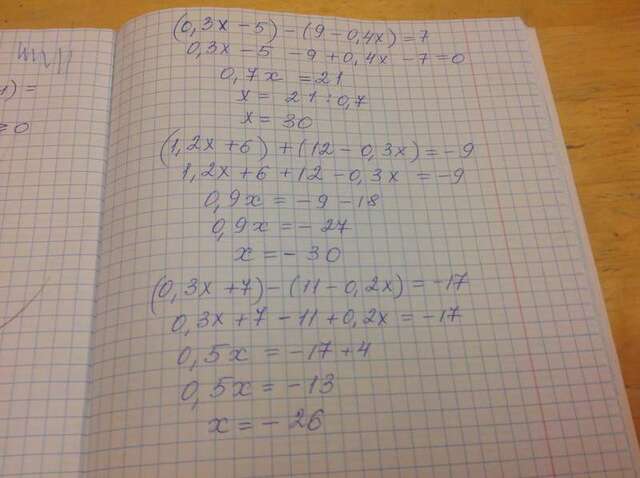 (0,3x - 5) - (9 - 0,4x) = 7
0,3x - 5 - 9 + 0,4x - 7 = 0
0,7x = 21
x = 21 : 0,7
x = 30
(1,2x + 6) + (12 - 0,3x) = -9
1,2x + 6 + 12 - 0,3x = -9
0,9x = -9 - 18
0,9x = -27
x = -30
(0,3x + 7) - (11 - 0,2x) = -17
0,3x + 7 - 11 + 0,2x = -17
0,5x = -17 + 4
0,5x = -13
x = -26